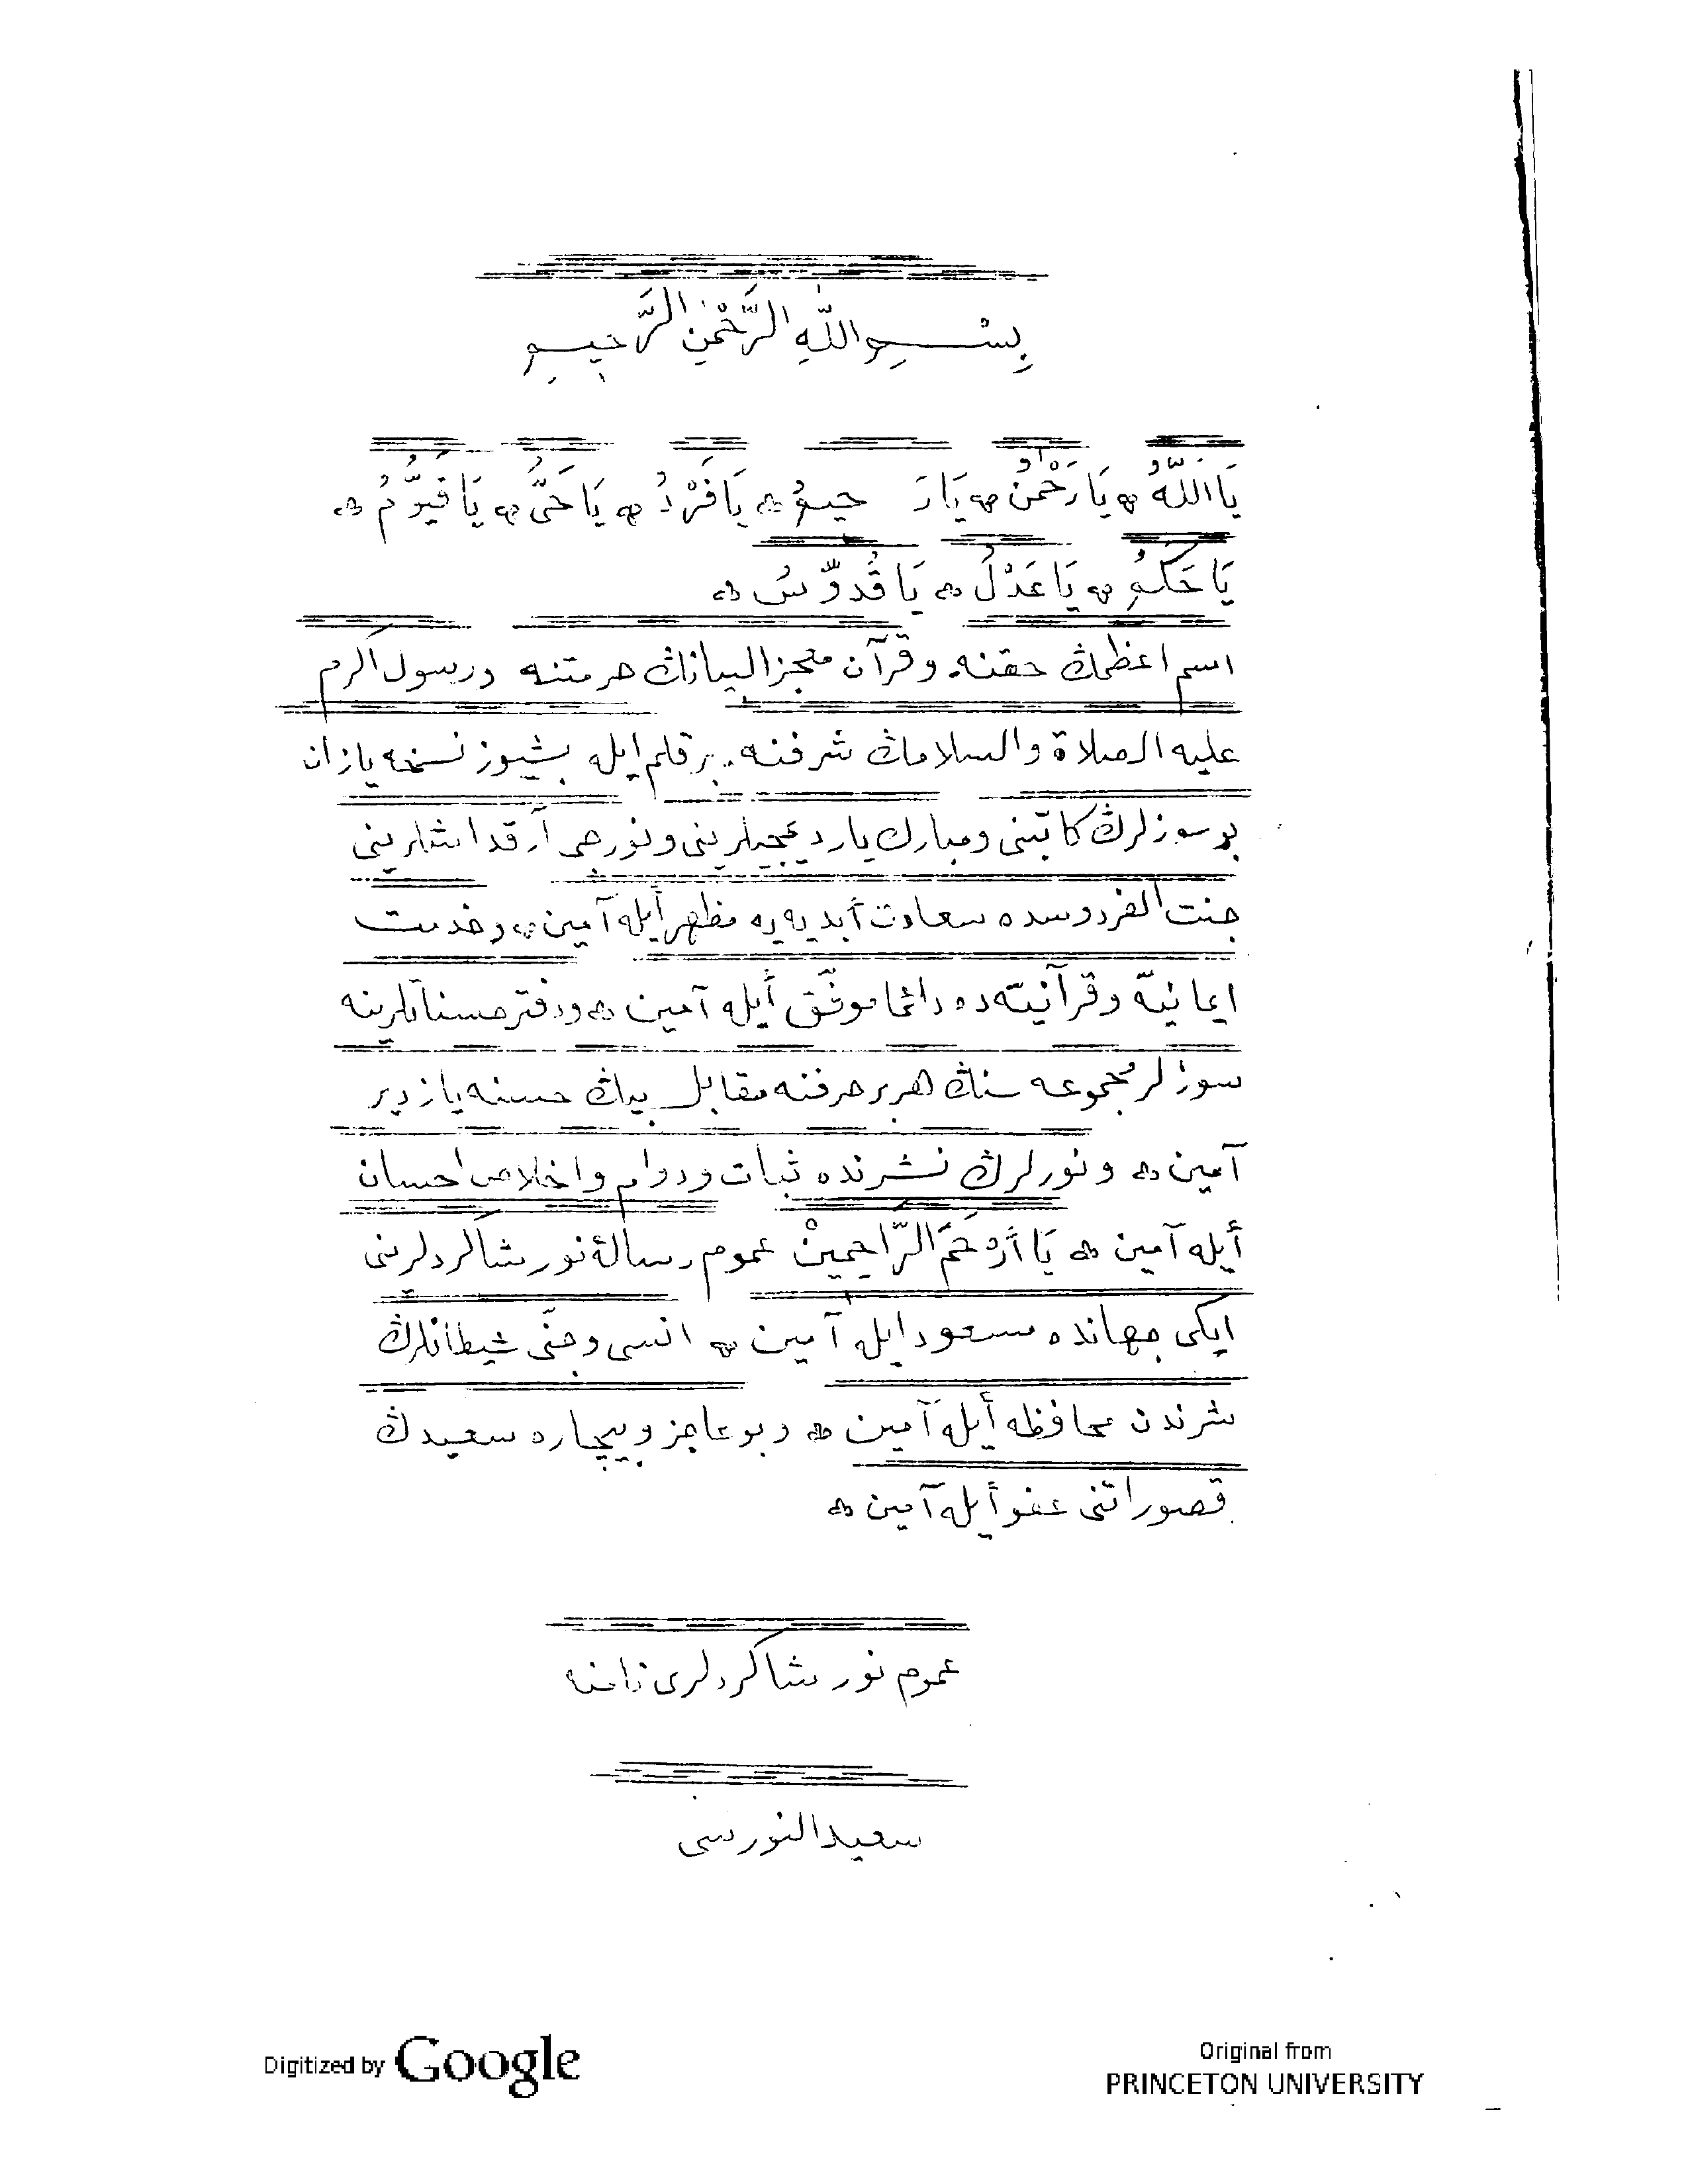 بِسْــمِ اللّٰهِ الرَّحْمٰنِ الرَّحِيــمِ
يَا اَللّٰهُ ❊ يَا رَحْمٰنُ ❊ يَا رَحِيمُ ❊ يَا فَرْدُ ❊ يَا حَىُّ ❊ يَا قَيُّومُ ❊
يَا حَكَمُ ❊ يَا عَدْلُ ❊ يَا قُدُّوسُ ❊
اسم اعظمڭ حقنه. وقرآن معجز البيانڭ حرمتنه ورسول اكرم
عليه الصلاة والسلامڭ شرفنه. بر قلم ايله بشيوز نسخه يازان
بو سوزلرڭ كاتبنى ومبارك ياردیمجيلرينى ونورجى آرقداشلرينى
جنت الفردوسده سعادت أبديه يه مظهر أيله آمين ❊ وخدمت
ايمانيّه وقرآنيّه ده دائما موفّق أيله آمين ❊ ودفتر حسناتلرينه
سوزلر مجموعه سنڭ هر بر حرفنه مقابل بيڭ حسنه يازدير
آمين ❊ ونورلرڭ نشرنده ثبات ودوام واخلاص احسان
أيله آمين ❊ يَا أَرْحَمَ الرَّاحِمِينْ عموم رسالۀ نور شاكردلرينى
ايكى جهانده مسعود ايله آمين ❊ انسى وجنّى شيطانلرڭ
شرندن محافظه أيله آمين ❊ وبو عاجز وبيچاره سعيدڭ
قصوراتنى عفو أيله آمين ❊
عموم نور شاكردلرى نامنه
سعيد النورسى
Digitized by Google
Original from
PRINCETON UNIVERSITY